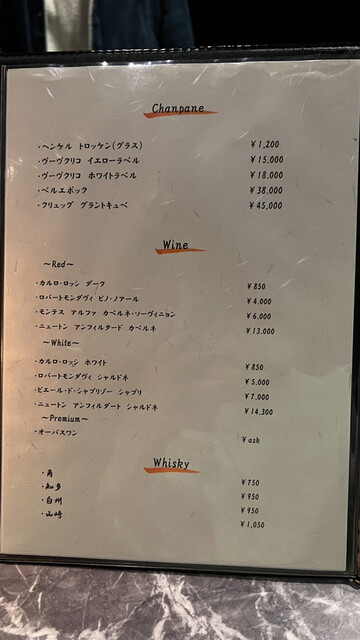 Chanpane
・ヘンケル トロッケン(グラス) ¥1,200
・ヴーヴクリコ イエローラベル ¥15,000
・ヴーヴクリコ ホワイトラベル ¥18,000
・ベルエポック ¥38,000
・クリュッグ グラントキュベ ¥45,000
Wine
～Red～
・カルロ・ロッシ ダーク ¥850
・ロバートモンダヴィ ピノ・ノアール ¥4,000
・モンテス アルファ カベルネ・ソーヴィニョン ¥6,000
・ニュートン アンフィルタード カベルネ ¥13,000
～White～
・カルロ・ロッシ ホワイト ¥850
・ロバートモンダヴィ シャルドネ ¥5,000
・ピエール・ド・シャブリゾー シャブリ ¥7,000
・ニュートン アンフィルダート シャルドネ ¥14,300
～Premium～
・オーパスワン ¥ask
Whisky
・角 ¥750
・知多 ¥950
・白州 ¥950
・山崎 ¥1,050